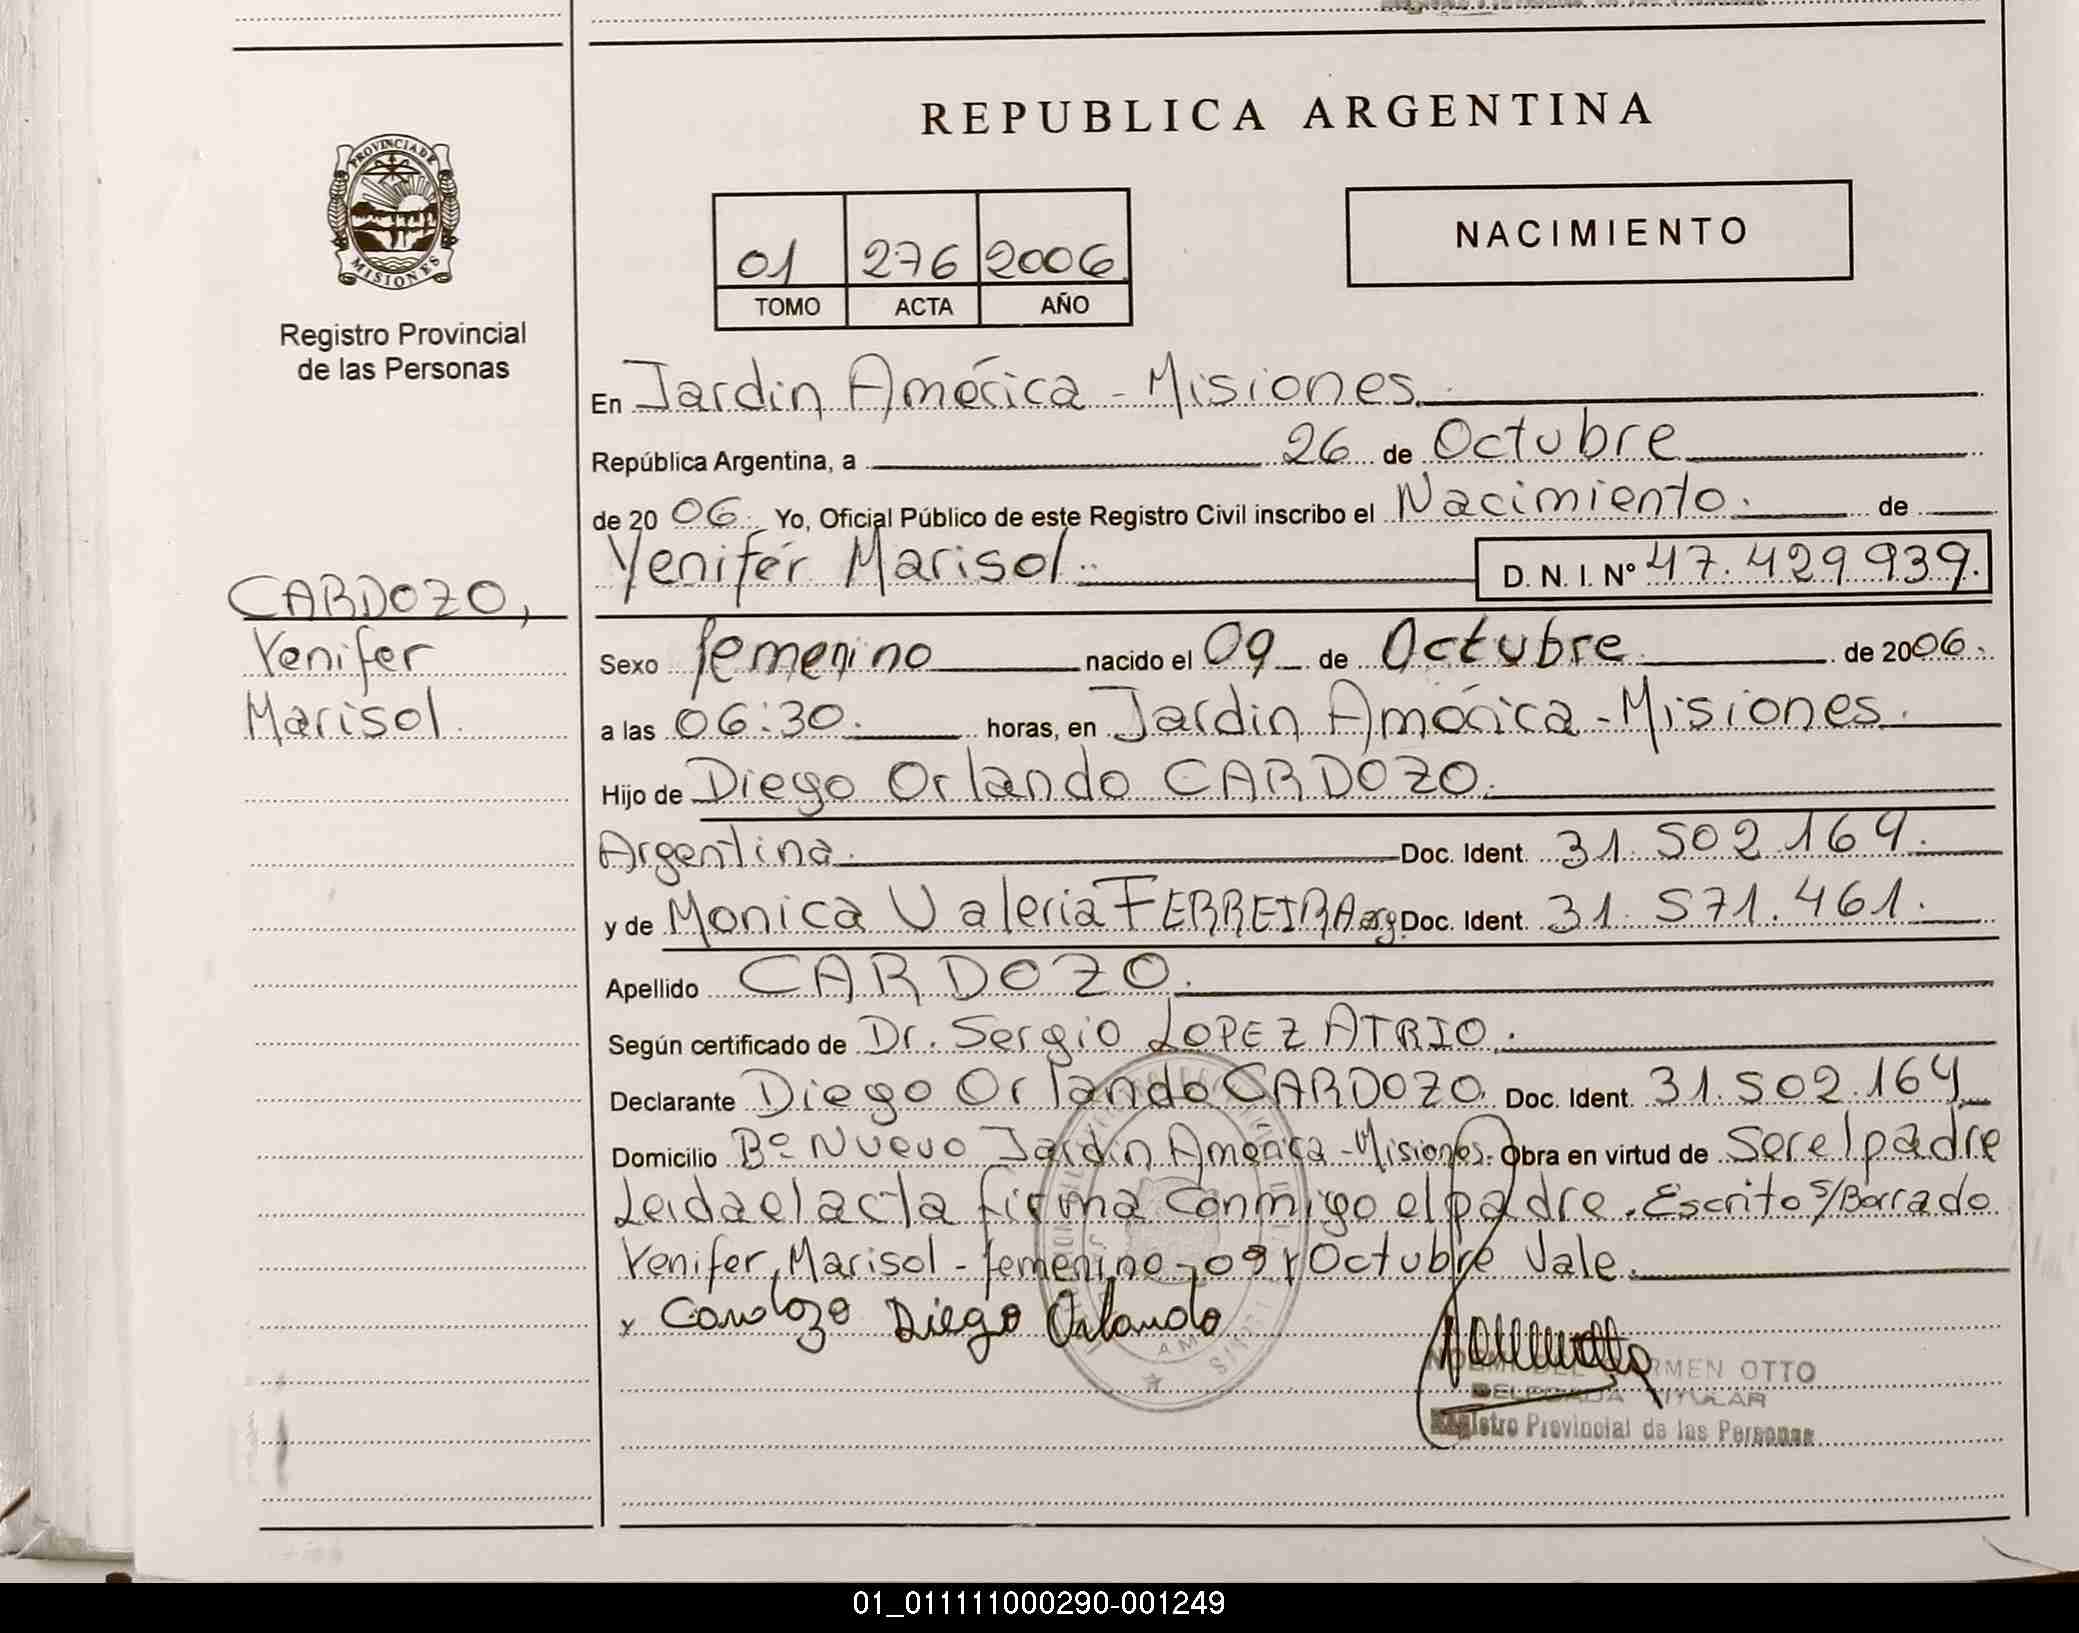 REPUBLICA ARGENTINA
PROVINCIA DE
MISIONES
Registro Provincial
de las Personas
01 276 2006
TOMO ACTA AÑO
NACIMIENTO
En Jardin América - Misiones.
República Argentina, a 26 de Octubre
de 2006. Yo, Oficial Público de este Registro Civil inscribo el Nacimiento. de
Yenifer Marisol. D. N. I. Nº 47.429939.
CARDOZO,
Yenifer
Marisol.
Sexo femenino nacido el 09 de Octubre de 2006.
a las 06:30. horas, en Jardin América - Misiones.
Hijo de Diego Orlando CARDOZO.
Argentina. Doc. Ident. 31.502.164.
y de Monica Valeria FERREIRA arg. Doc. Ident. 31.571.461.
Apellido CARDOZO.
Según certificado de Dr. Sergio LOPEZ ATRIO.
Declarante Diego Orlando CARDOZO. Doc. Ident. 31.502.164
Domicilio Bº Nuevo Jardin América - Misiones. Obra en virtud de Ser el padre
Leida el acta firma conmigo el padre. Escrito s/Borrado
Yenifer, Marisol - femenino - 09 y Octubre Vale.
x Cardozo Diego Orlando
CARMEN OTTO
DELEGADA TITULAR
Registro Provincial de las Personas
01_011111000290-001249